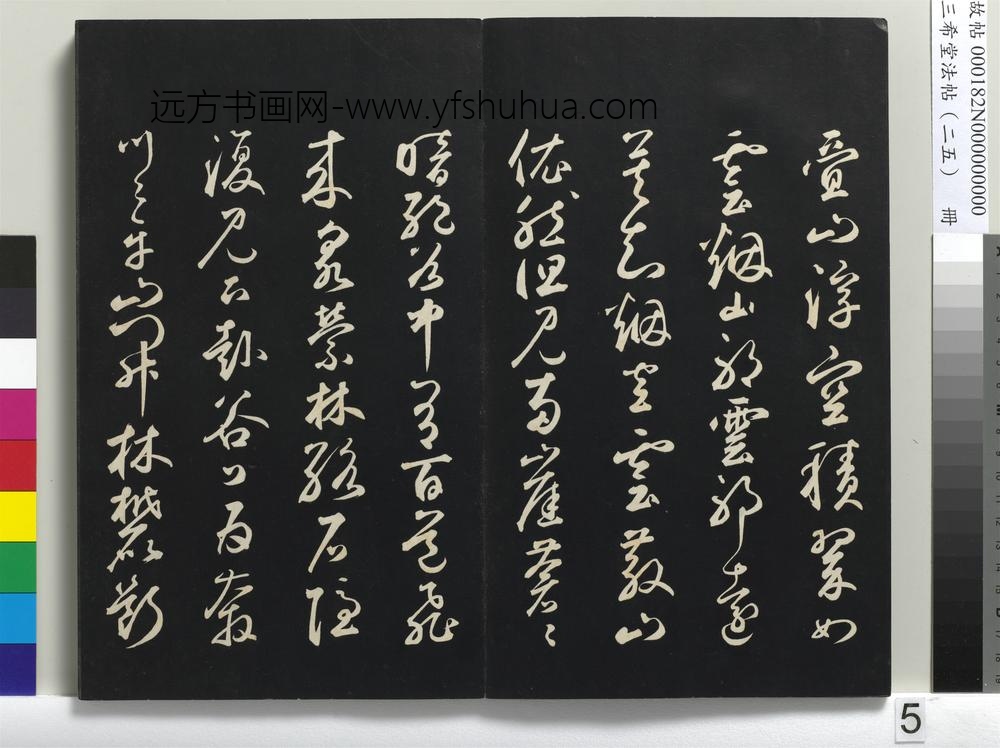 远方书画网-www.yfshuhua.com
疊山浮空積翠如
雲烟山耶雲耶遠
莫知烟空雲散山
依然但見兩崖蒼〻
暗絕谷中有百道飛
來泉縈林絡石隱
復見下赴谷口為奔
川〻平山開林麓斷
故帖 000182N000000000
三希堂法帖（二五） 冊
5